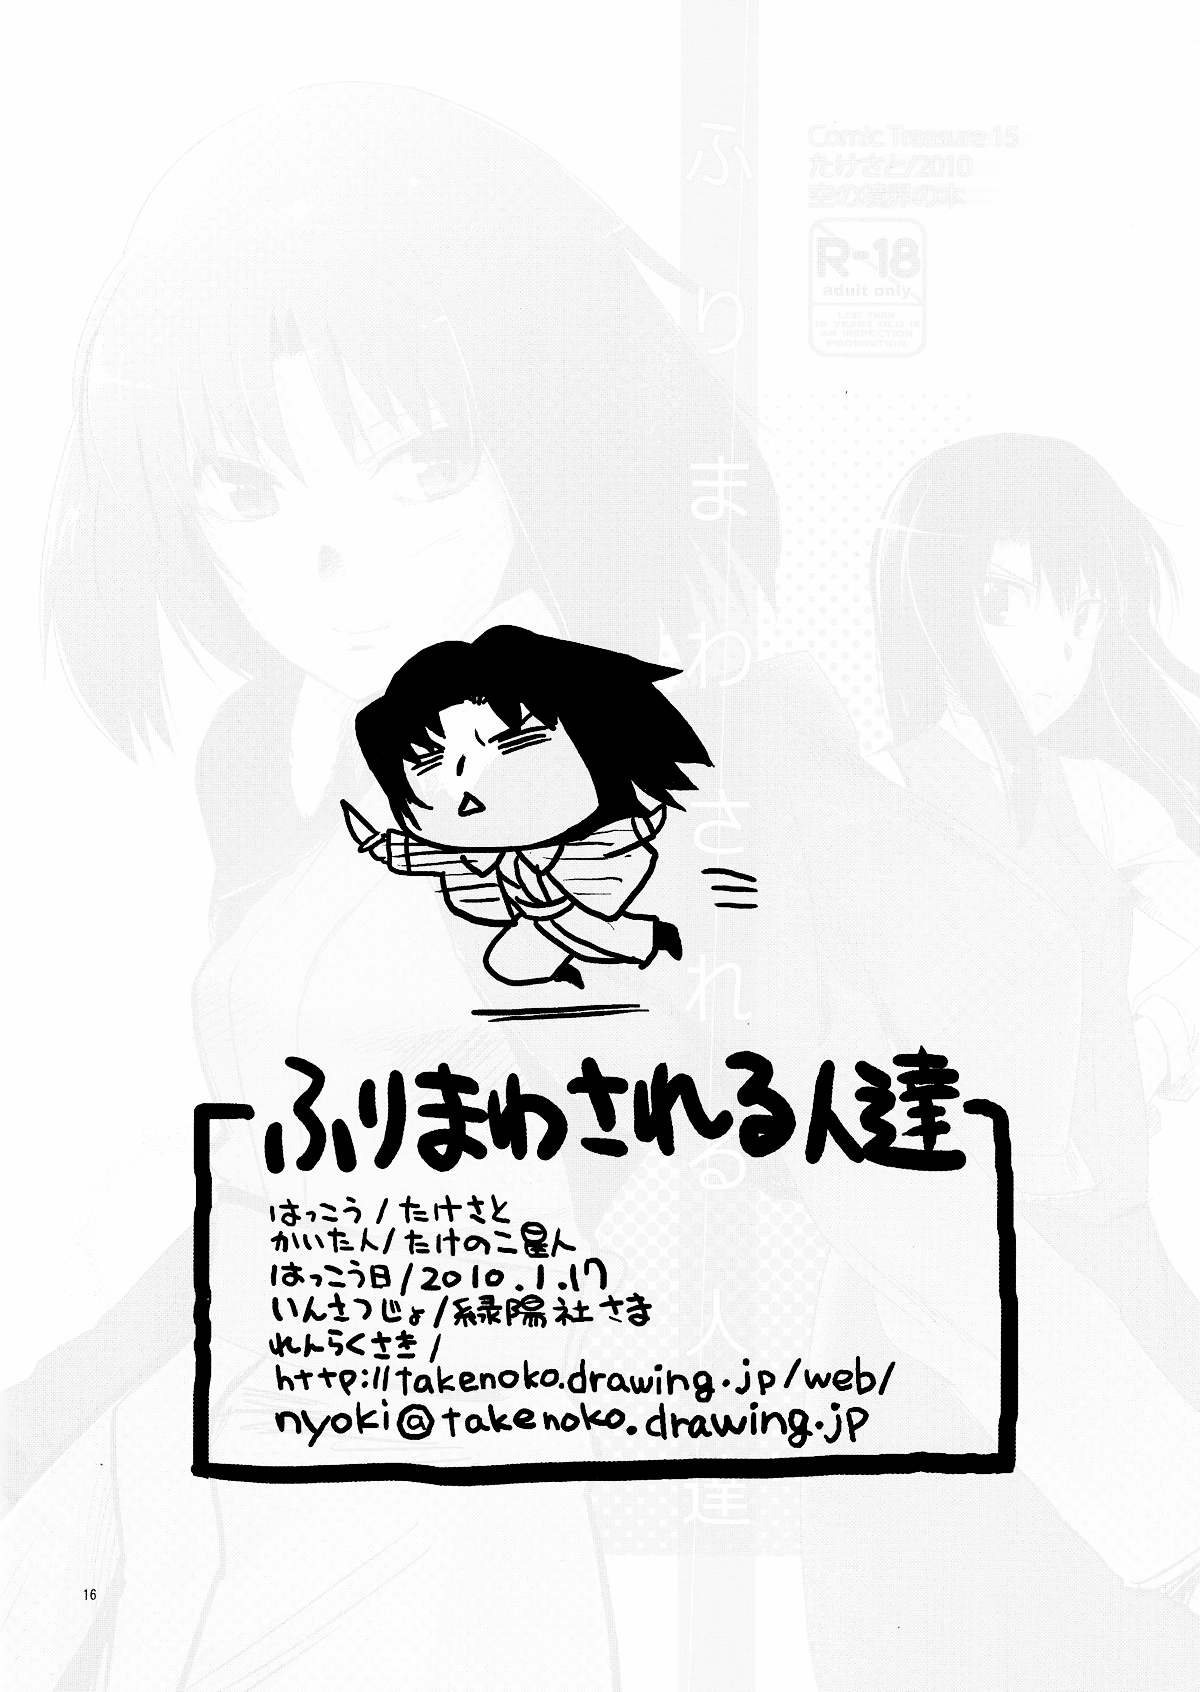 Comic Treasure 15
たけさと/2010
空の境界の本
R-18
adult only
LESS THAN
18 YEARS OLD IS
AN INSPECTION
PROHIBITION.
ふりまわされる人達
ふりまわされる人達
はっこう/たけさと
かいたん/たけのこ星人
はっこう日/2010.1.17
いんさつじょ/緑陽社さま
れんらくさき/
http://takenoko.drawing.jp/web/
nyoki@takenoko.drawing.jp
16